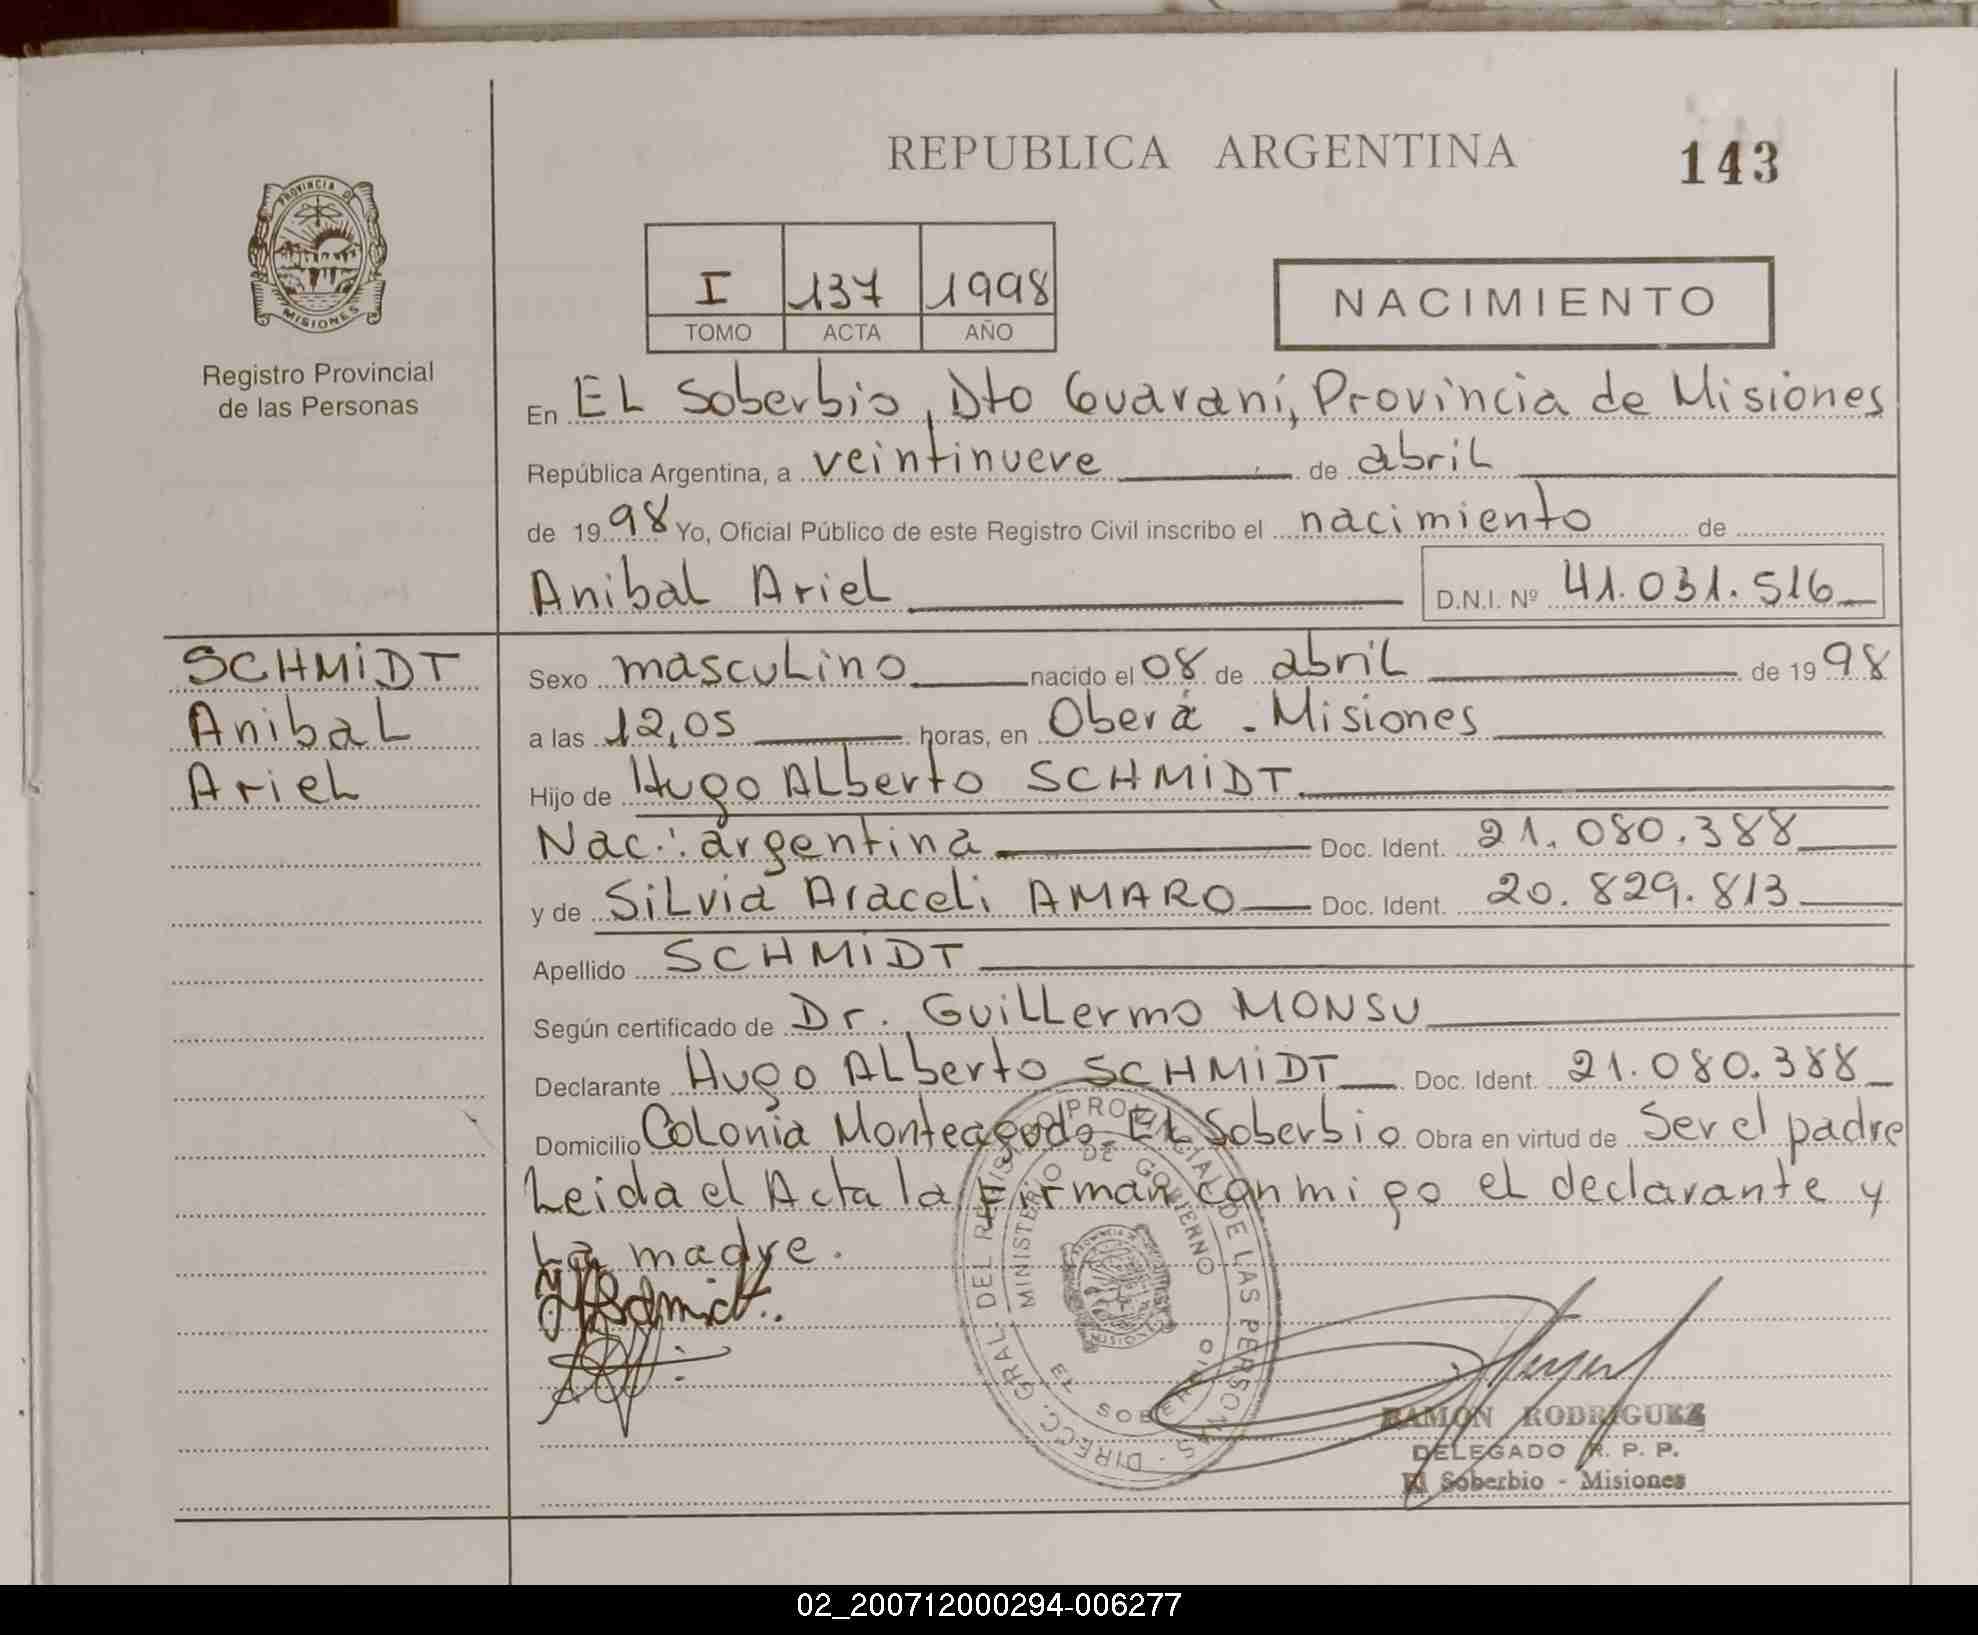 REPUBLICA ARGENTINA
143
PROVINCIA DE
MISIONES
Registro Provincial
de las Personas
I 137 1998
TOMO ACTA AÑO
NACIMIENTO
En EL Soberbio, Dto Guaraní, Provincia de Misiones
República Argentina, a veintinueve de abril
de 1998 Yo, Oficial Público de este Registro Civil inscribo el nacimiento de
Anibal Ariel D.N.I. Nº 41.031.516
SCHMIDT
Anibal
Ariel
Sexo masculino nacido el 08 de abril de 1998
a las 12,05 horas, en Oberá - Misiones
Hijo de Hugo Alberto SCHMIDT
Nac.: argentina Doc. Ident. 21.080.388
y de Silvia Araceli AMARO Doc. Ident. 20.829.813
Apellido SCHMIDT
Según certificado de Dr. Guillermo MONSU
Declarante Hugo Alberto SCHMIDT Doc. Ident. 21.080.388
Domicilio Colonia Monteagudo - El Soberbio. Obra en virtud de Ser el padre
Leida el Acta la firman conmigo el declarante y
La madre.
DIRECC. GRAL. DEL REGISTRO PROVINCIAL DE LAS PERSONAS
MINISTERIO DE GOBIERNO
EL SOBERBIO
RAMON RODRIGUEZ
DELEGADO R. P. P.
El Soberbio - Misiones
02_200712000294-006277